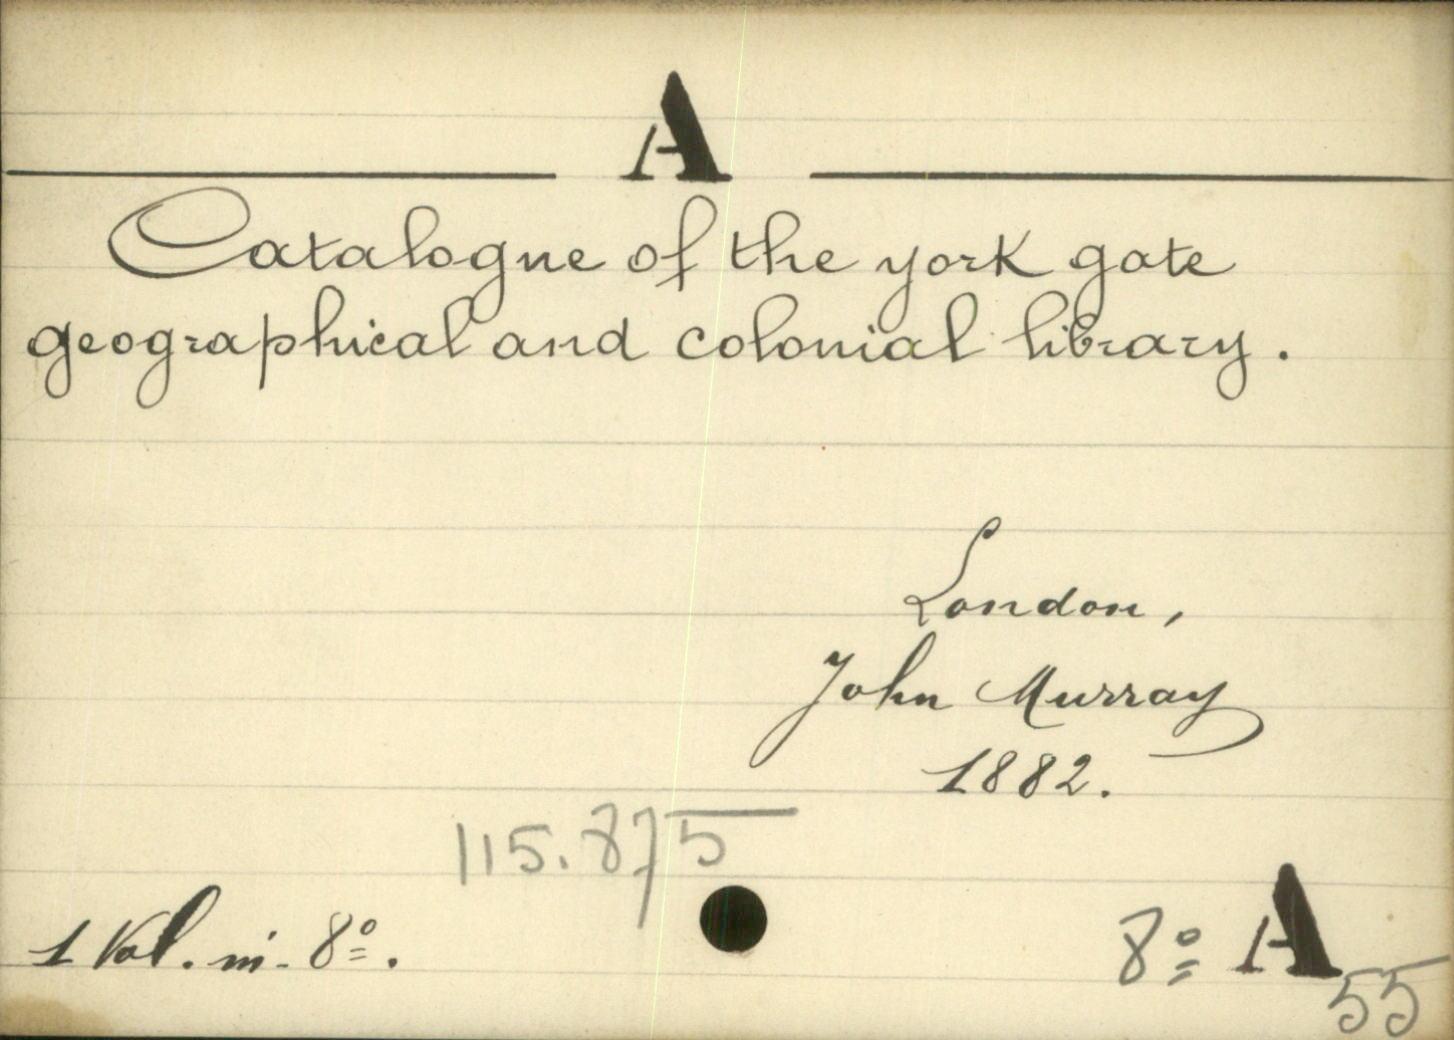 A
Catalogue of the york gate
geographical and colonial library.
London,
John Murray
1882.
115.875
1 Vol. in-8º.
8º A 55